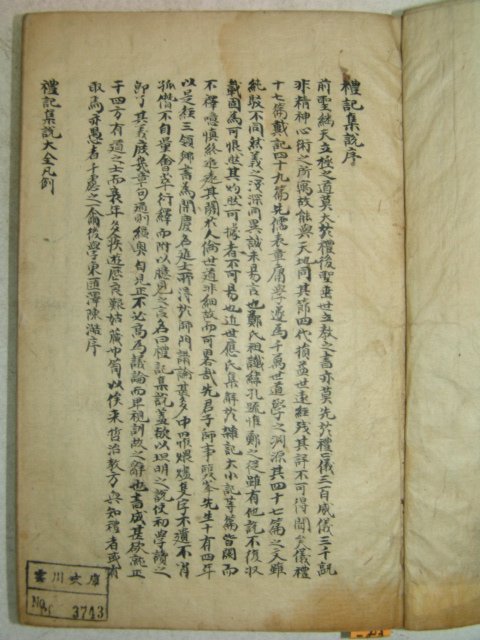 禮記集說序
前聖繼天立極之道莫大於禮後聖垂世立敎之書亦莫先於禮禮儀三百威儀三千孰
非精神心術之所寓故能與天地同其節四代損益世遠經殘其詳不可得聞矣儀禮
十七篇戴記四十九篇先儒表章庸學遂爲千萬世道學之淵源其四十七篇之文雖
純駁不同然義之淺深同異誠未易言也鄭氏祖讖緯孔疏惟鄭之從雖有他說不復收
載固爲可恨然其灼然可據者不可易也近世應氏集解於雜記大小記等篇皆闕而
不釋噫愼終追遠其關於人倫世道非細故而可畧哉先君子師事雙峯先生十有四年
以是經三領鄕書爲開慶名進士所得於師門講論甚多中罹煨燼隻字不遺不肖
孤僭不自量會萃衍繹而附以臆見之言名曰禮記集說蓋欲以坦明之說使初學讀之
卽了其義庶幾章句通則緼奧自見正不必高爲議論而卑視訓故之辭也書成甚欲就正
于四方有道之士而衰年多疾遊歷良艱姑藏巾笥以俟來哲治敎方興知禮者或有
取焉亦愚者千慮之一爾後學東匯澤陳澔序
禮記集說大全凡例
雲川文庫
No. 3743